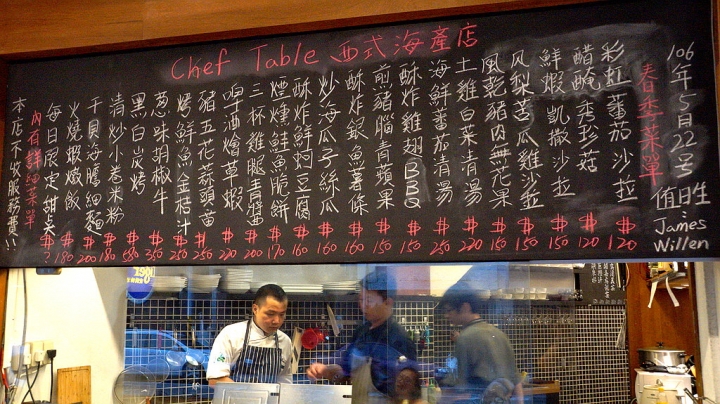 Chef Table 西式海產店
106年5月22号
春季菜單
值日生:
James
Willen
彩拉蕃茄沙拉 $120
醋醃秀珍菇 $120
鮮蝦凱撒沙拉 $150
风梨苦瓜雞沙拉 $150
風乾豬肉無花果 $150
土雞白菜清湯 $220
海鮮蕃茄清湯 $250
酥炸雞翅BBQ $150
煎豬腦青蘋果 $150
酥炸銀魚薯條 $150
炒海瓜子絲瓜 $160
酥炸鮮蚵豆腐 $160
煙燻鮭魚脆餅 $170
三杯雞腿 $200
啤酒燴草蝦 $220
豬五花蒜頭苗 $250
烤鮮魚金桔汁 $250
蔥味胡椒牛 $350
黑白炭烤 $580
清炒小卷米粉 $180
干貝海膽細麵 $200
火燒蝦燉飯 $180
每日限定甜点 $?
內有詳細菜單
本店不收服務費!!